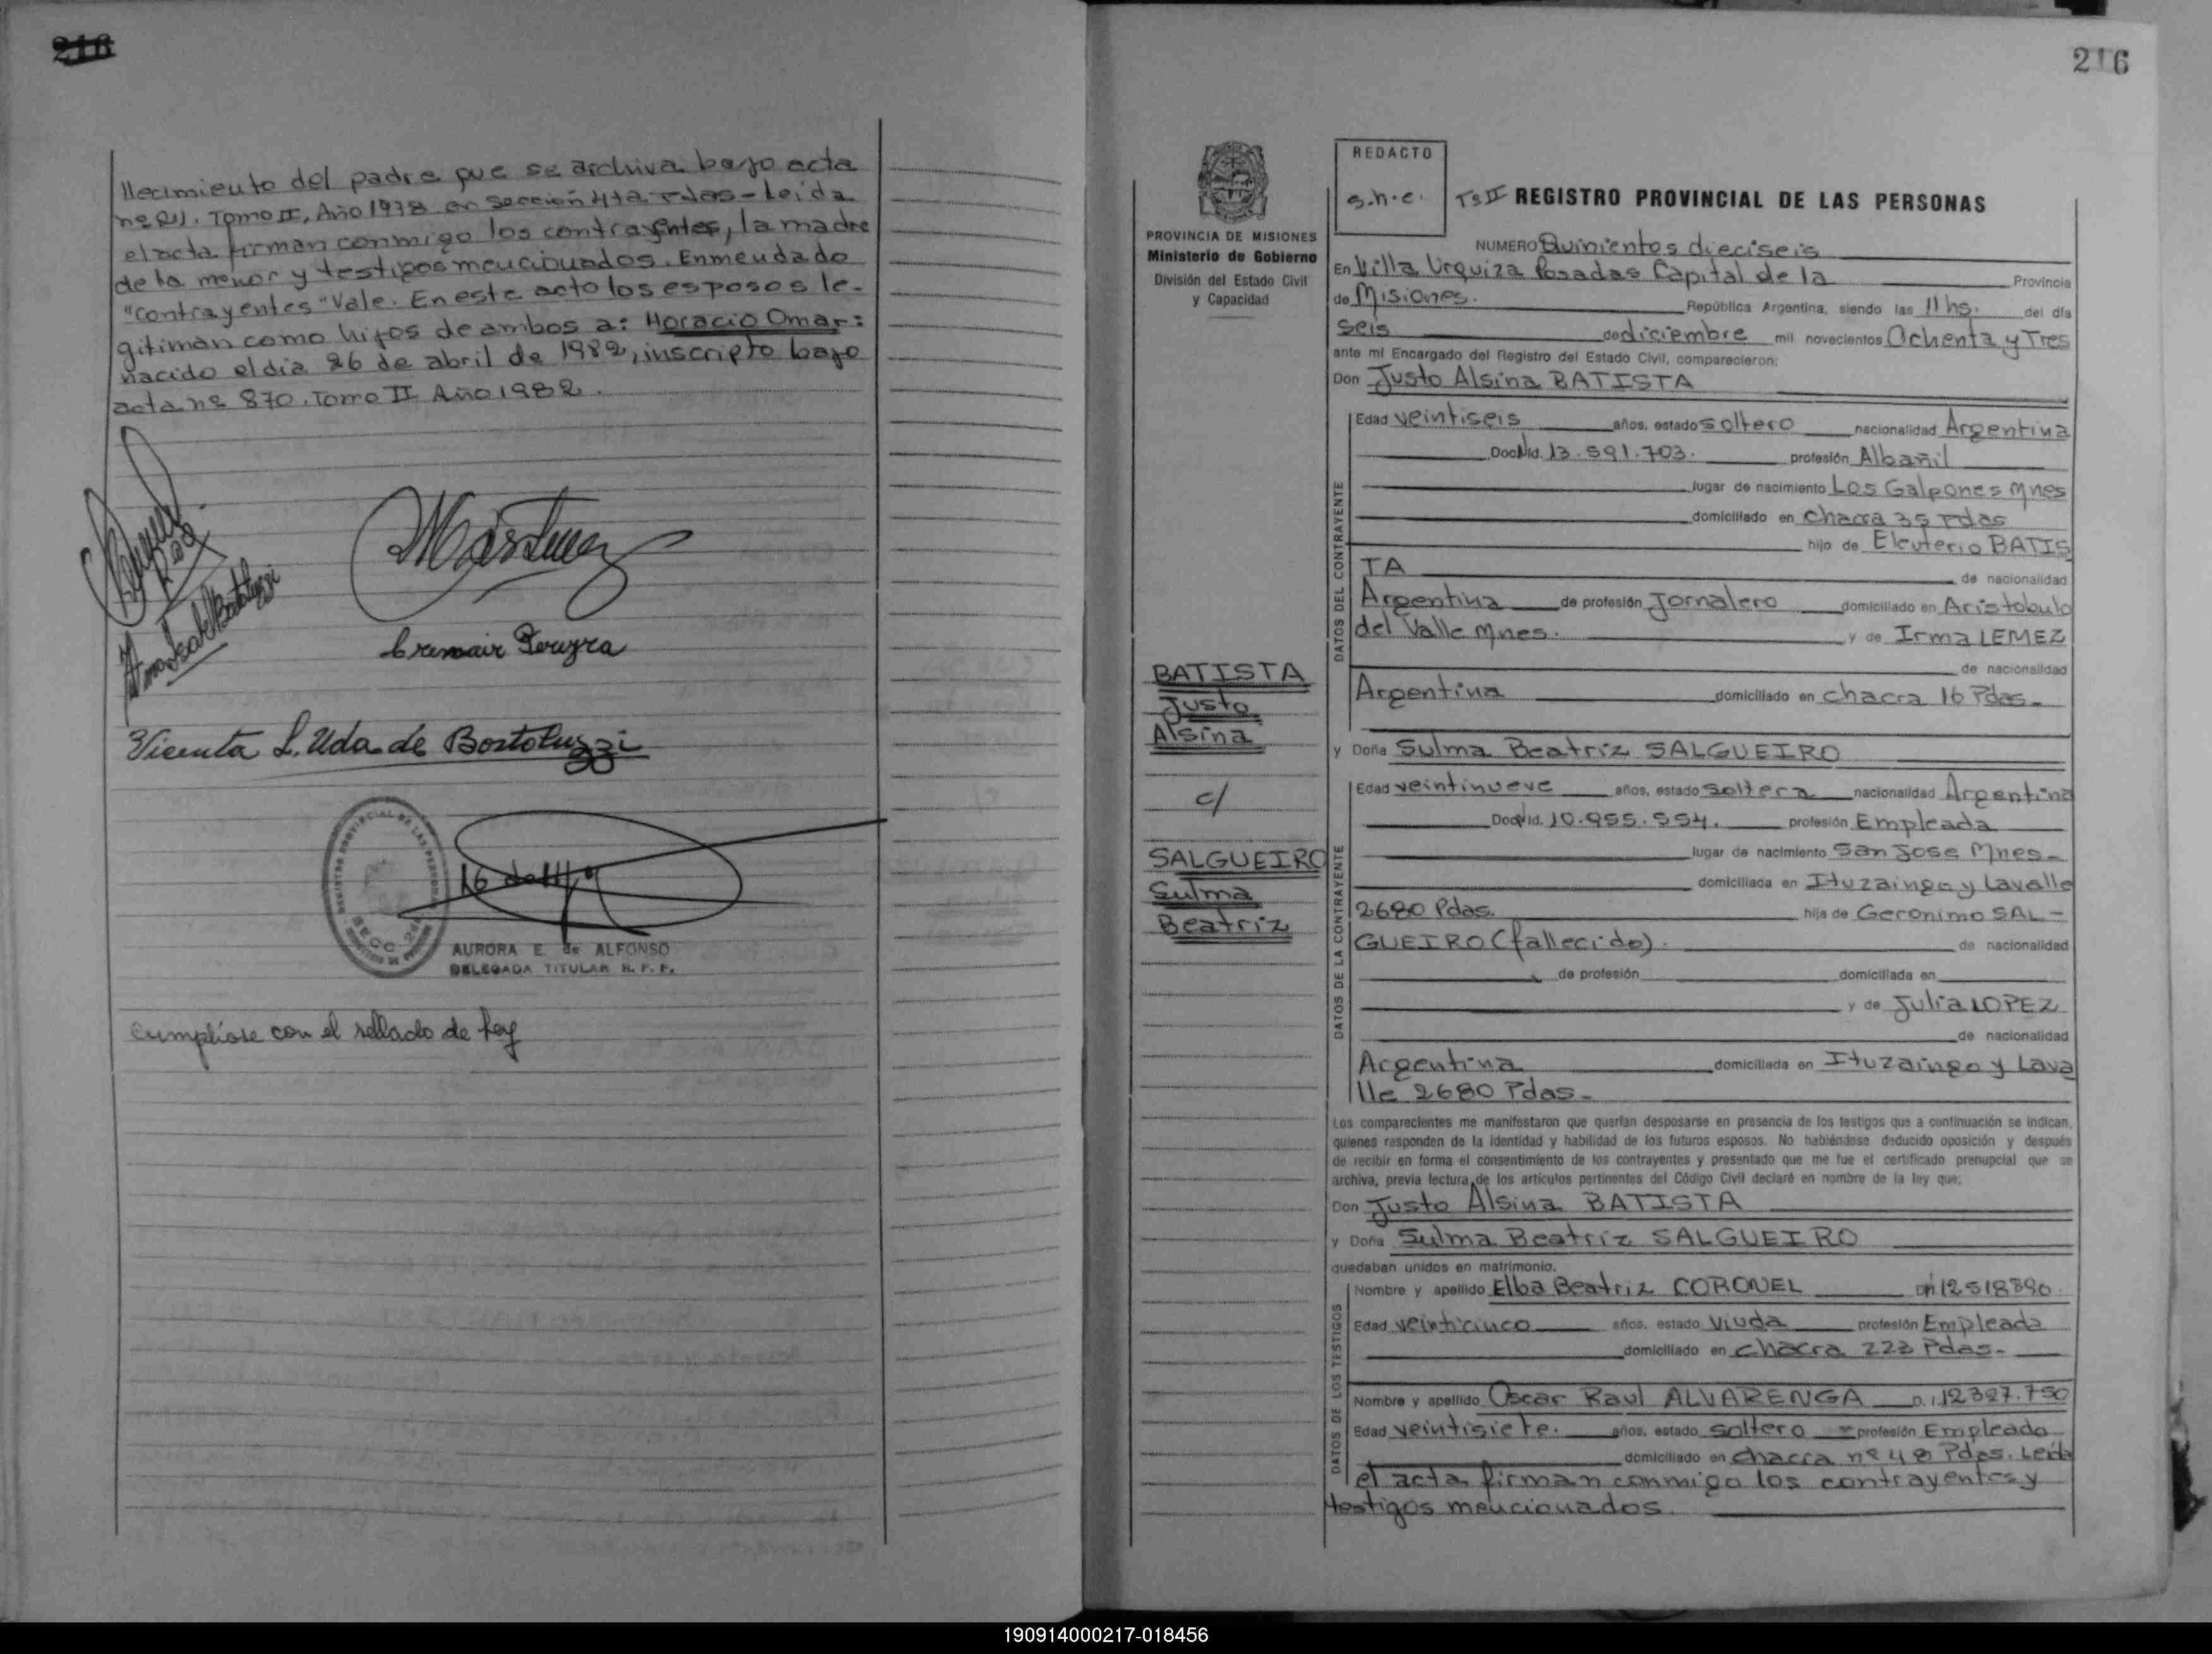 216
llecimiento del padre que se archiva bajo acta
Tomo II, Año 1978 en sección 4ta Pdas - Leída
el acta firman conmigo los contrayentes, la madre
de la menor y testigos mencionados. Enmendado
"contrayentes" Vale. En este acto los esposos le-
gitiman como hijos de ambos a: Horacio Omar:
nacido el día 26 de abril de 1982, inscripto bajo
acta nº 870. Tomo II Año 1982.
Vicenta L. Vda de Bortoluzzi
AURORA E. de ALFONSO
DELEGADA TITULAR R. P. P.
Cumpliose con el sellado de ley
216
PROVINCIA DE MISIONES
Ministerio de Gobierno
División del Estado Civil
y Capacidad
BATISTA
Justo
Alsina
c/
SALGUEIRO
Sulma
Beatriz
REDACTO
s.h.c.
Ts II REGISTRO PROVINCIAL DE LAS PERSONAS
NUMERO Quinientos dieciseis
En Villa Urquiza Posadas Capital de la Provincia
de Misiones. República Argentina, siendo las 11 hs. del día
seis de diciembre mil novecientos Ochenta y Tres
ante mí Encargado del Registro del Estado Civil, comparecieron:
Don Justo Alsina BATISTA
DATOS DEL CONTRAYENTE
Edad veintiseis años, estado soltero nacionalidad Argentina
Doc. Id. 13.591.703. profesión Albañil
lugar de nacimiento Los Galpones Mnes
domiciliado en chacra 35 Pdas
hijo de Eleuterio BATIS
TA de nacionalidad
Argentina de profesión Jornalero domiciliado en Aristobulo
del Valle Mnes. y de Irma LEMEZ
de nacionalidad
Argentina domiciliado en chacra 16 Pdas.
y Doña Sulma Beatriz SALGUEIRO
DATOS DE LA CONTRAYENTE
Edad veintinueve años, estado soltera nacionalidad Argentina
Doc. Id. 10.955.554. profesión Empleada
lugar de nacimiento San Jose Mnes-
domiciliada en Ituzaingo y Lavalle
2680 Pdas. hija de Geronimo SAL-
GUEIRO (fallecido). de nacionalidad
de profesión domiciliada en
y de Julia LOPEZ
de nacionalidad
Argentina domiciliada en Ituzaingo y Lava
lle 2680 Pdas-
Los comparecientes me manifestaron que querían desposarse en presencia de los testigos que a continuación se indican,
quienes responden de la identidad y habilidad de los futuros esposos. No habiéndose deducido oposición y después
de recibir en forma el consentimiento de los contrayentes y presentado que me fue el certificado prenupcial que se
archiva, previa lectura de los artículos pertinentes del Código Civil declaré en nombre de la ley que:
Don Justo Alsina BATISTA
y Doña Sulma Beatriz SALGUEIRO
quedaban unidos en matrimonio.
DATOS DE LOS TESTIGOS
Nombre y apellido Elba Beatriz CORONEL
Edad veinticinco años, estado viuda profesión Empleada
domiciliado en chacra 223 Pdas-
Nombre y apellido Oscar Raul ALVARENGA D.I. 12.327.750
Edad veintisiete. años, estado soltero profesión Empleado
domiciliado en chacra nº 48 Pdas. Leída
el acta firman conmigo los contrayentes y
testigos mencionados.
190914000217-018456